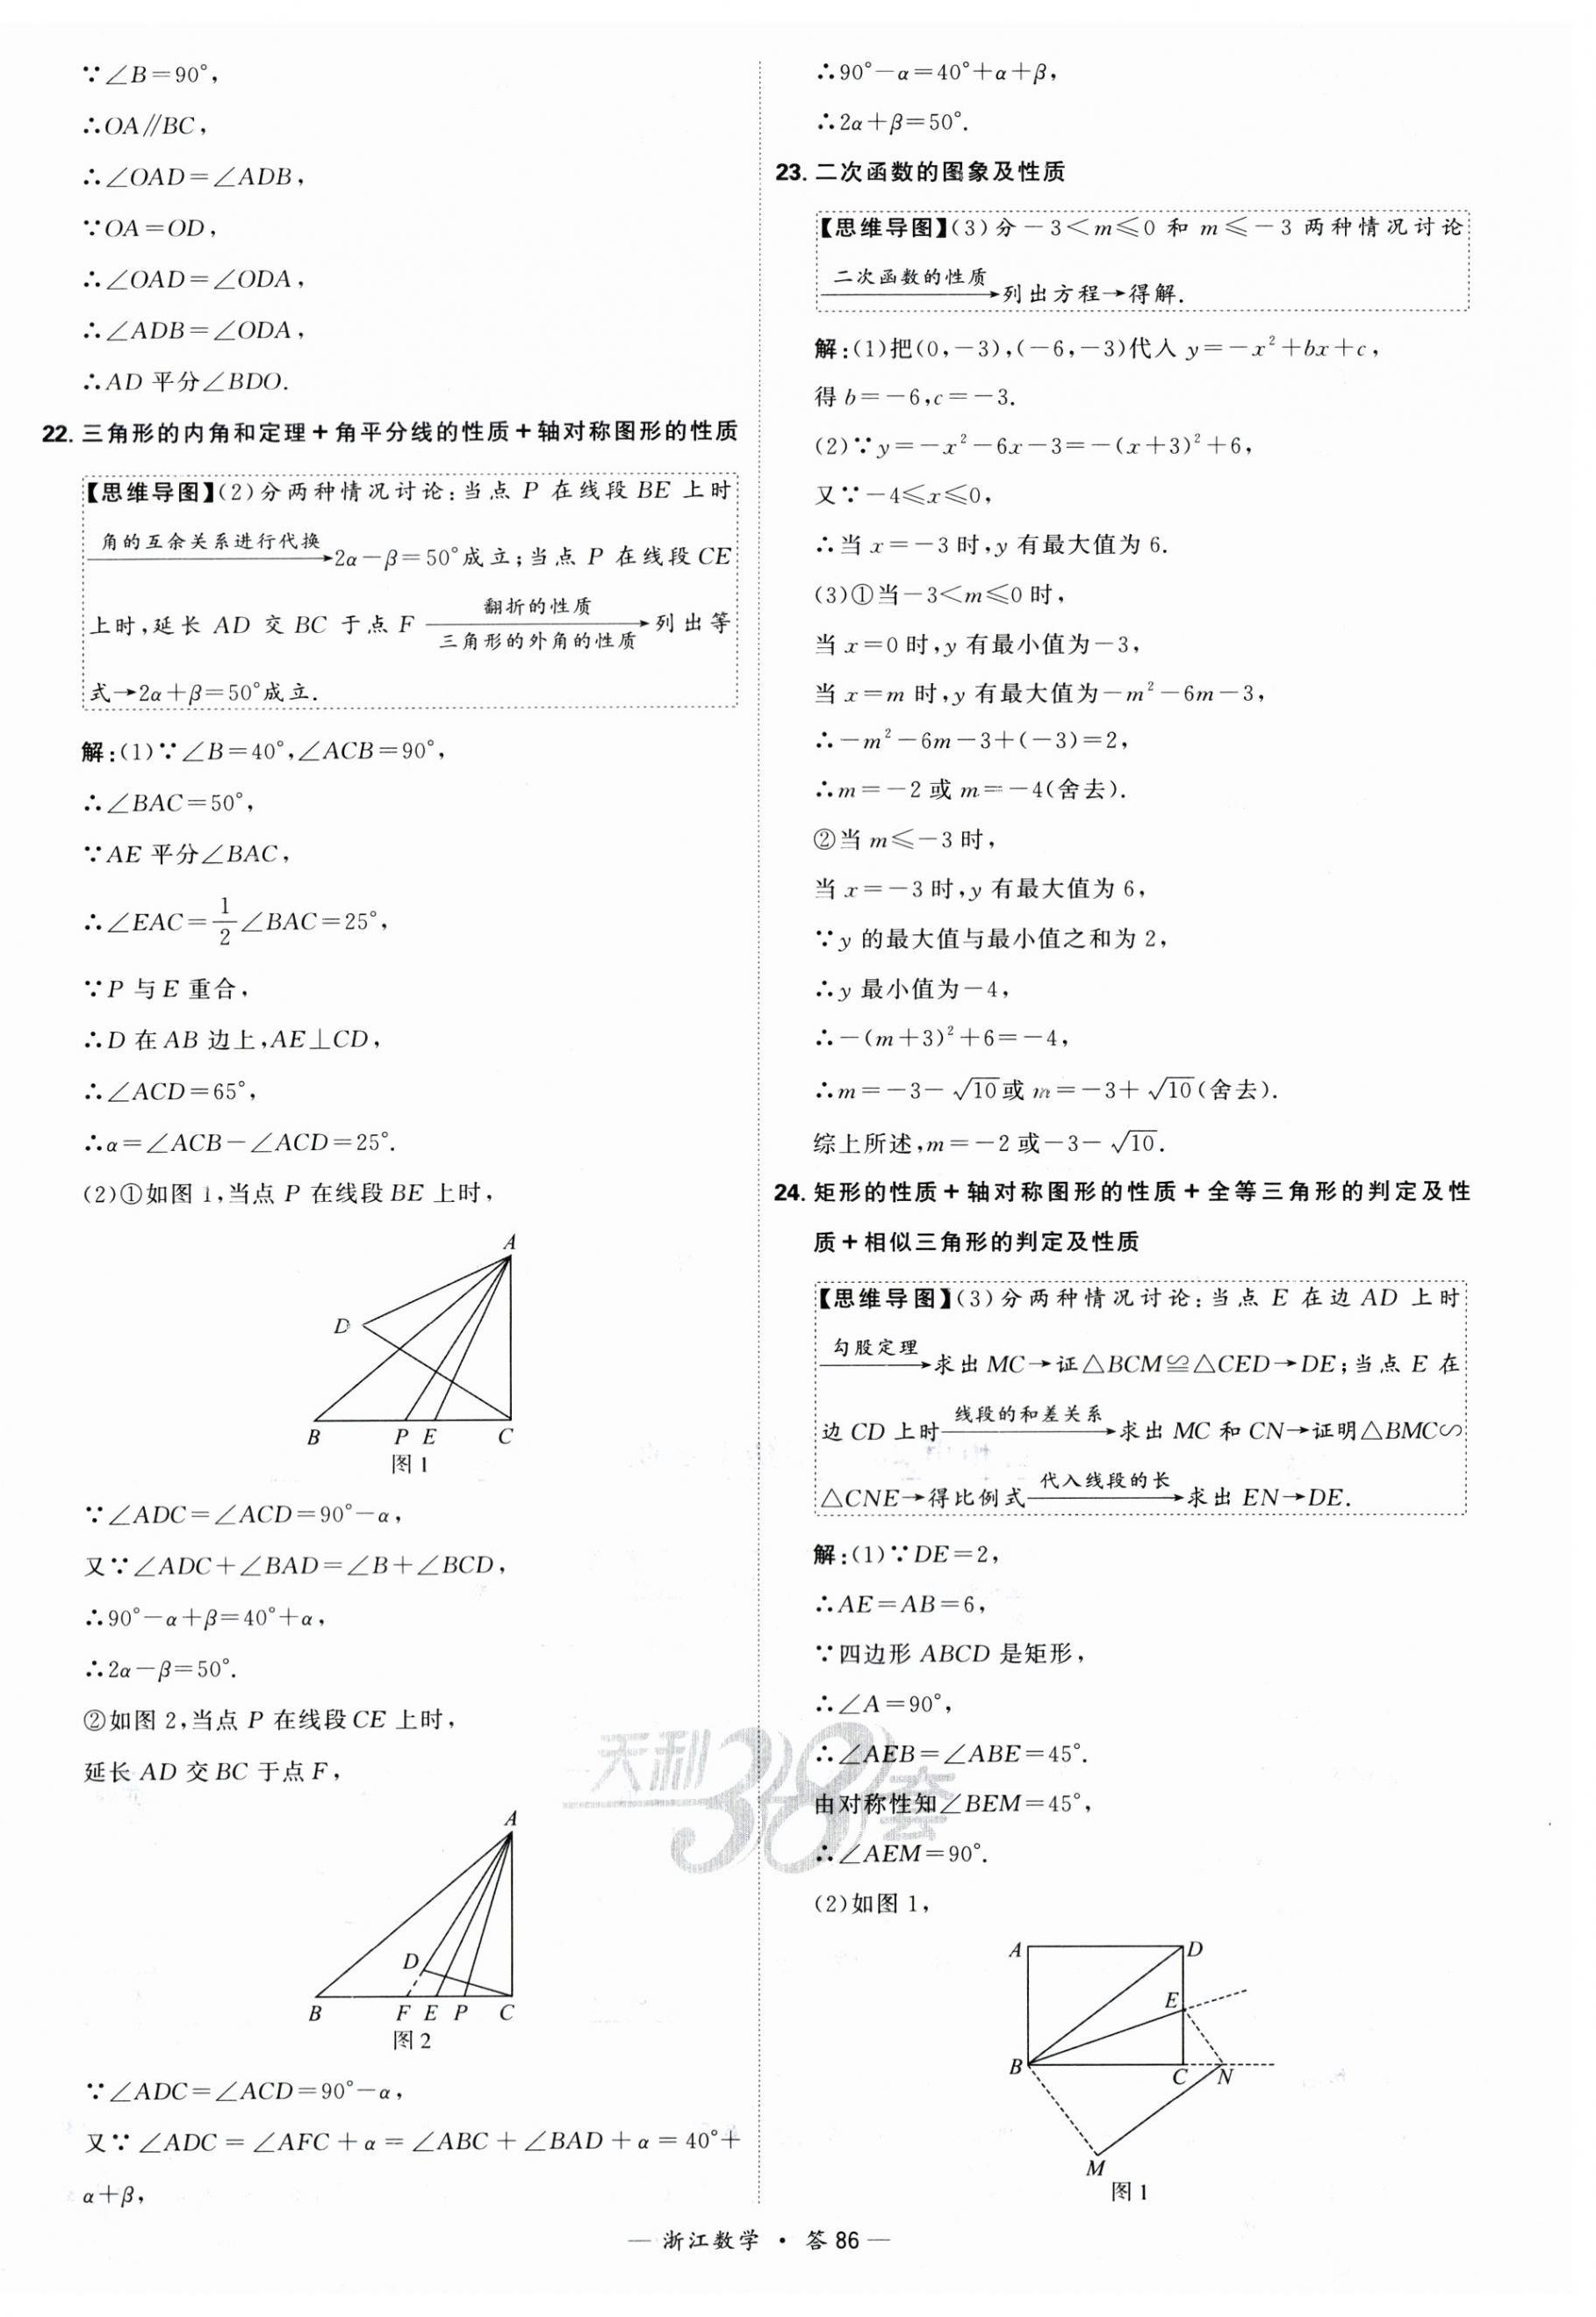 ∵∠B=90°,
∴OA∥BC,
∴∠OAD=∠ADB,
∵OA=OD,
∴∠OAD=∠ODA,
∴∠ADB=∠ODA,
∴AD 平分∠BDO.
22. 三角形的内角和定理+角平分线的性质+轴对称图形的性质
【思维导图】(2)分两种情况讨论:当点 P 在线段 BE 上时
角的互余关系进行代换
→2α-β=50°成立;当点 P 在线段 CE
翻折的性质
上时,延长 AD 交 BC 于点 F → 列出等
三角形的外角的性质
式→2α+β=50°成立.
解:(1)∵∠B=40°,∠ACB=90°,
∴∠BAC=50°,
∵AE 平分∠BAC,
∴∠EAC=1/2∠BAC=25°,
∵P 与 E 重合,
∴D 在 AB 边上,AE⊥CD,
∴∠ACD=65°,
∴α=∠ACB-∠ACD=25°.
(2)①如图 1,当点 P 在线段 BE 上时,
A
D
B P E C
图 1
∵∠ADC=∠ACD=90°-α,
又∵∠ADC+∠BAD=∠B+∠BCD,
∴90°-α+β=40°+α,
∴2α-β=50°.
②如图 2,当点 P 在线段 CE 上时,
延长 AD 交 BC 于点 F,
A
D
B F E P C
图 2
∵∠ADC=∠ACD=90°-α,
又∵∠ADC=∠AFC+α=∠ABC+∠BAD+α=40°+
α+β,
∴90°-α=40°+α+β,
∴2α+β=50°.
23. 二次函数的图象及性质
【思维导图】(3)分-3<m≤0 和 m≤-3 两种情况讨论
二次函数的性质
→列出方程→得解.
解:(1)把(0,-3),(-6,-3)代入 y=-x²+bx+c,
得 b=-6,c=-3.
(2)∵y=-x²-6x-3=-(x+3)²+6,
又∵-4≤x≤0,
∴当 x=-3 时,y 有最大值为 6.
(3)①当-3<m≤0 时,
当 x=0 时,y 有最小值为-3,
当 x=m 时,y 有最大值为-m²-6m-3,
∴-m²-6m-3+(-3)=2,
∴m=-2 或 m=-4(舍去).
②当 m≤-3 时,
当 x=-3 时,y 有最大值为 6,
∵y 的最大值与最小值之和为 2,
∴y 最小值为-4,
∴-(m+3)²+6=-4,
∴m=-3-√10或 m=-3+√10(舍去).
综上所述,m=-2 或-3-√10.
24. 矩形的性质+轴对称图形的性质+全等三角形的判定及性
质+相似三角形的判定及性质
【思维导图】(3)分两种情况讨论:当点 E 在边 AD 上时
勾股定理
→求出 MC→证△BCM≌△CED→DE;当点 E 在
线段的和差关系
边 CD 上时→求出 MC 和 CN→证明△BMC∽
代入线段的长
△CNE→得比例式→求出 EN→DE.
解:(1)∵DE=2,
∴AE=AB=6,
∵四边形 ABCD 是矩形,
∴∠A=90°,
∴∠AEB=∠ABE=45°.
由对称性知∠BEM=45°,
∴∠AEM=90°.
(2)如图 1,
A D
E
B C N
M
图 1
天利38套
— 浙江数学 · 答 86 —